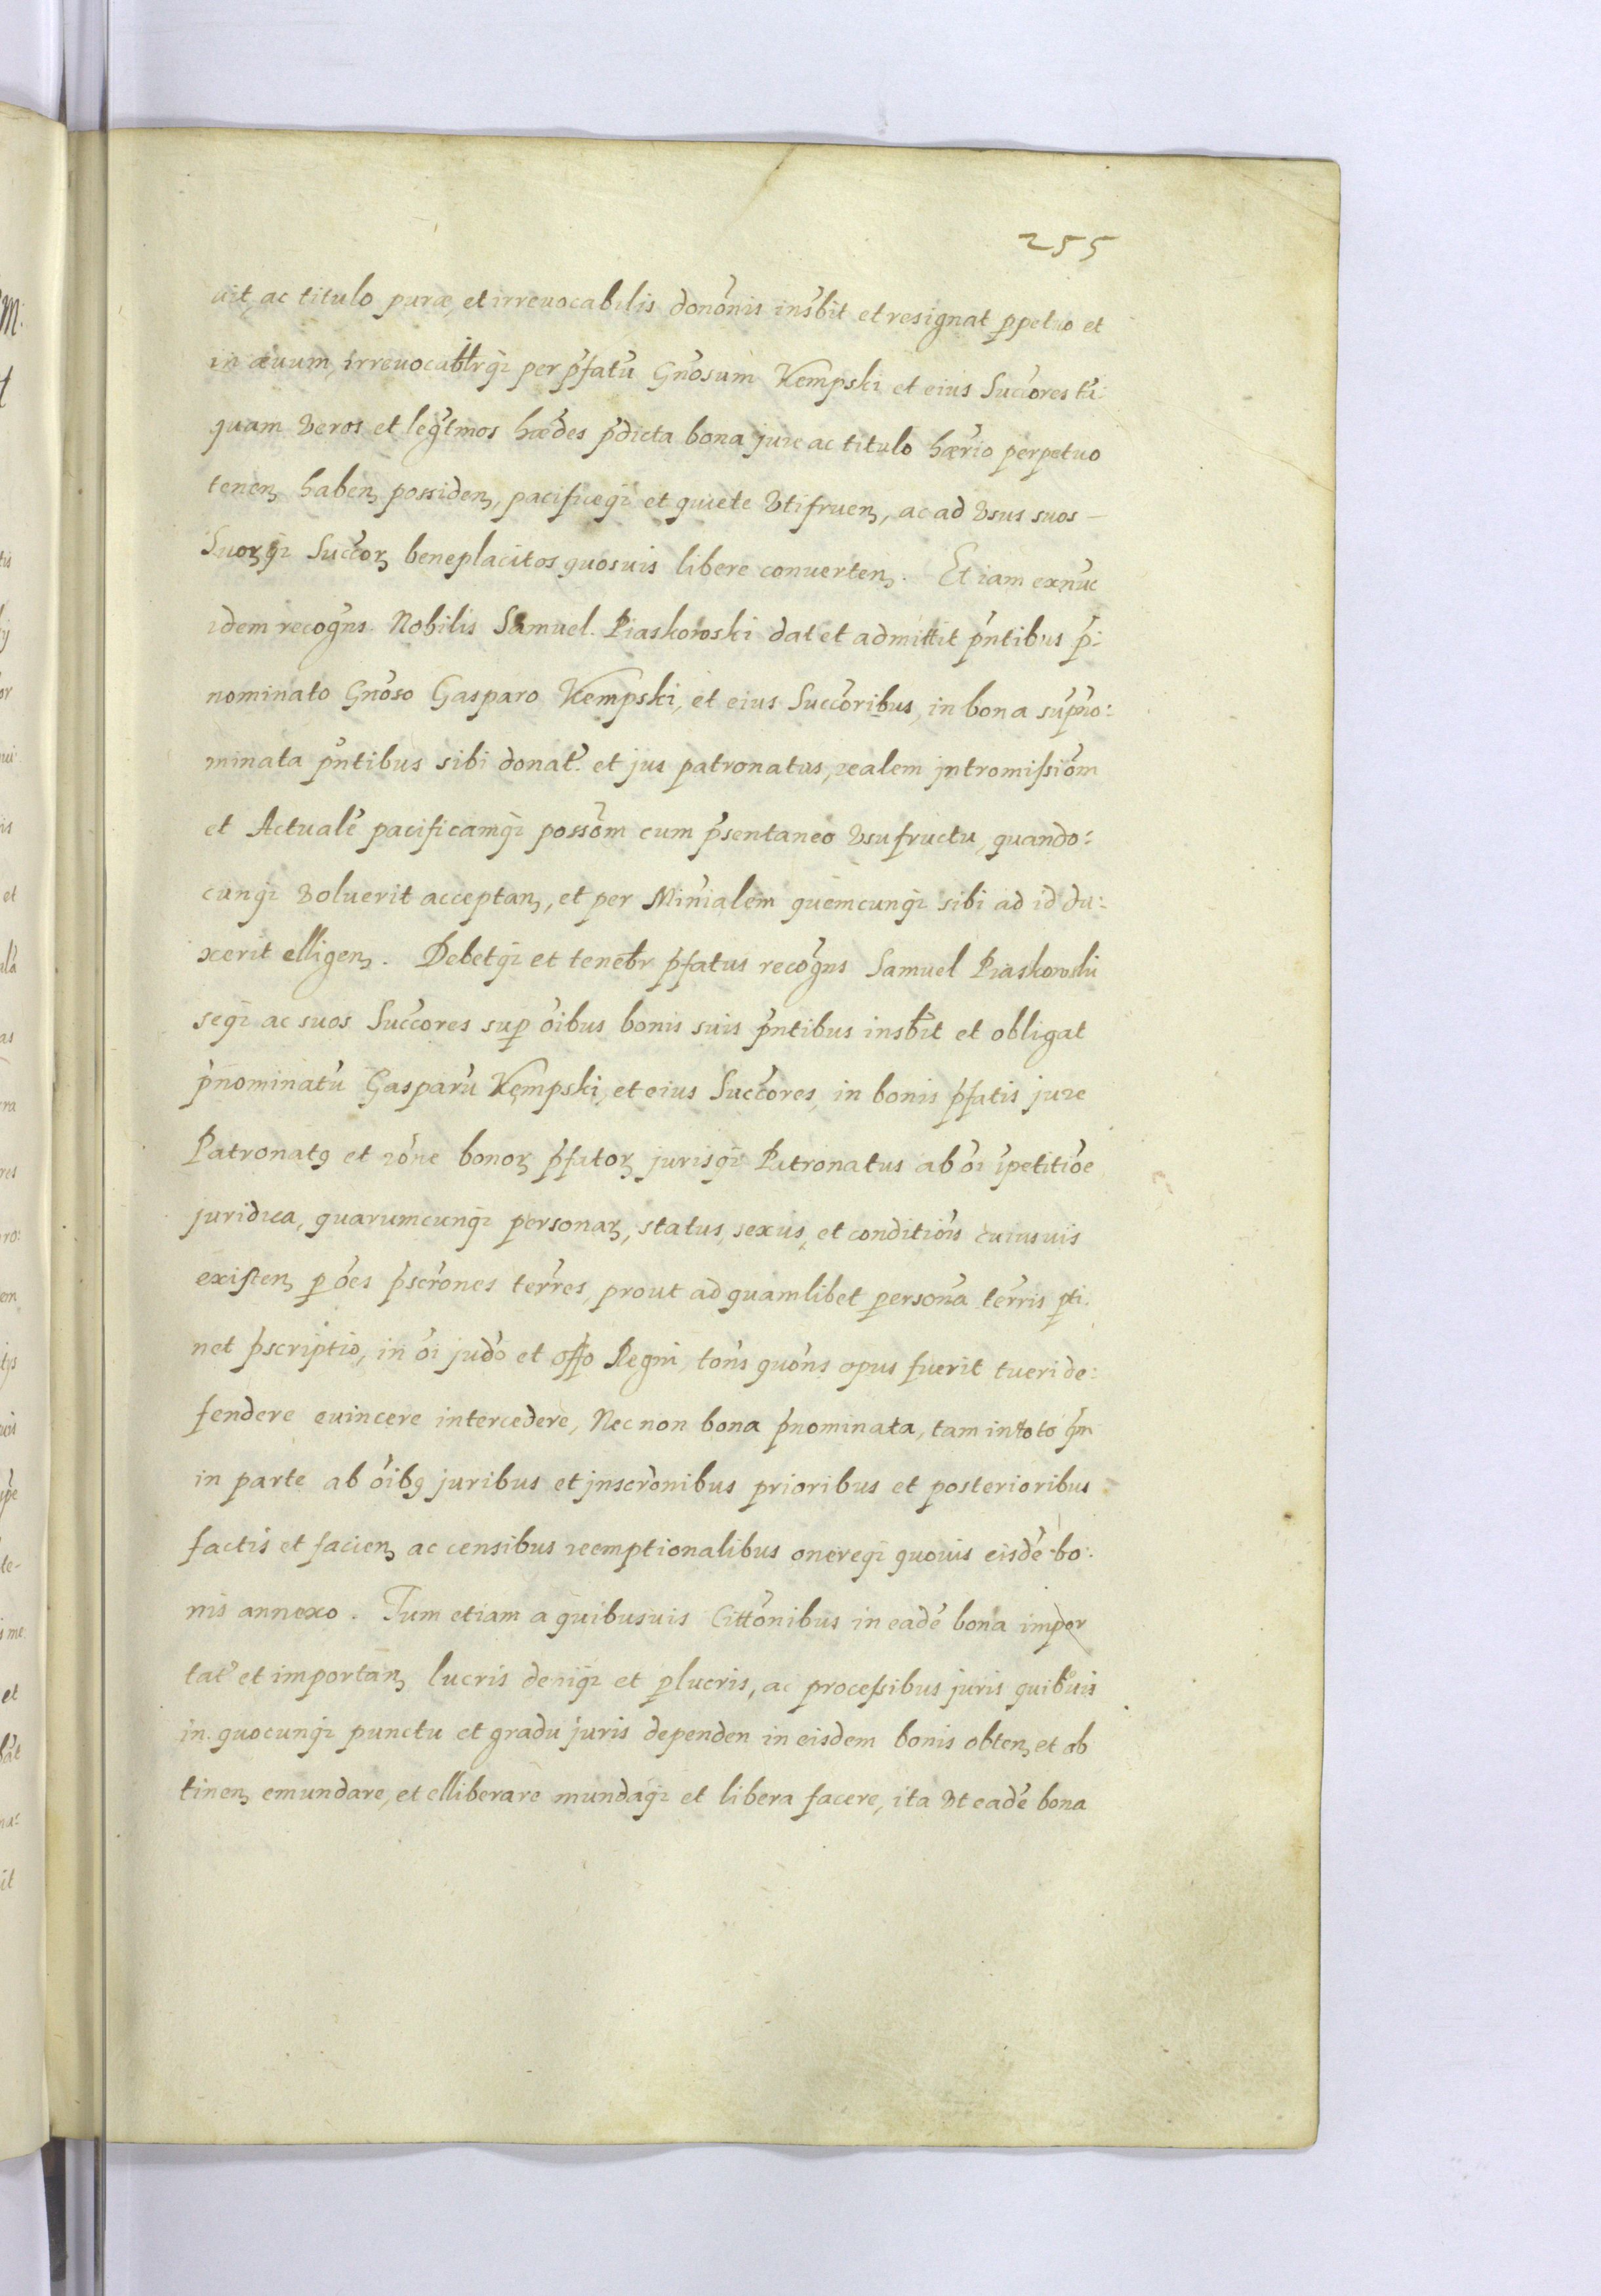 255
uit, ac titulo puræ, et irreuocabilis donõnis insbit et resignat ppetuo et
in æuum, irreuocabtrq3 per pfatũ Gnosum Kempski et eius Succores tã:
quam veros et legtmos hædes pdicta bona jure ac titulo hærio perpetuo
tenen haben possiden, pacificeq3 et quiete vtifruen, ac ad vsus suos –
Suorq3 Succor beneplacitos quosuis libere conuerten. Et iam exnũc
idem recogns. Nobilis Samuel. Piaskowski dat et admittit pntibus p:
nominato Gnoso Gasparo Kempski, et eius Succoribus, in bona supno:
minata pntibus sibi donat. et jus patronatus, realem jntromissiõm
et Actualẽ pacificamq3 possõm cum psentaneo vsufructu, quando:
cunq3 voluerit acceptan, et per Minialem quemcunq3 sibi ad id du:
xerit elligen. Debetq3 et tenebr pfatus recogns Samuel Piaskowski
seq3 ac suos Succores sup oibus bonis suis pntibus insbit et obligat
pnominatũ Gasparũ Kempski, et eius Succores, in bonis pfatis jure
Patronatq et rõne bonor pfator jurisq3 Patronatus ab oi ipetitiõe
juridica, quarumcunq3 personar, status, sexus, et conditiõis cuiusuis
existen p oes pscrones terres, prout ad quamlibet personã terris pti:
net pscriptio, in oi judo et offo Regni, tons quons opus fuerit tueri de:
fendere euincere intercedere, Nec non bona pnominata, tam in toto qm
in parte ab oibq juribus et jnscrõnibus prioribus et posterioribus
factis et facien ac censibus reemptionalibus onereq3 quouis eisdẽ bo:
nis annexo. Tum etiam a quibusuis Cittõnibus in eadẽ bona impor
tat et importan lucris deniq3 et plucris, ac processibus juris quibuis
in quocunq3 punctu et gradu juris dependen in eisdem bonis obten et ob
tinen emundare, et elliberare mundaq3 et libera facere, ita vt eadẽ bona